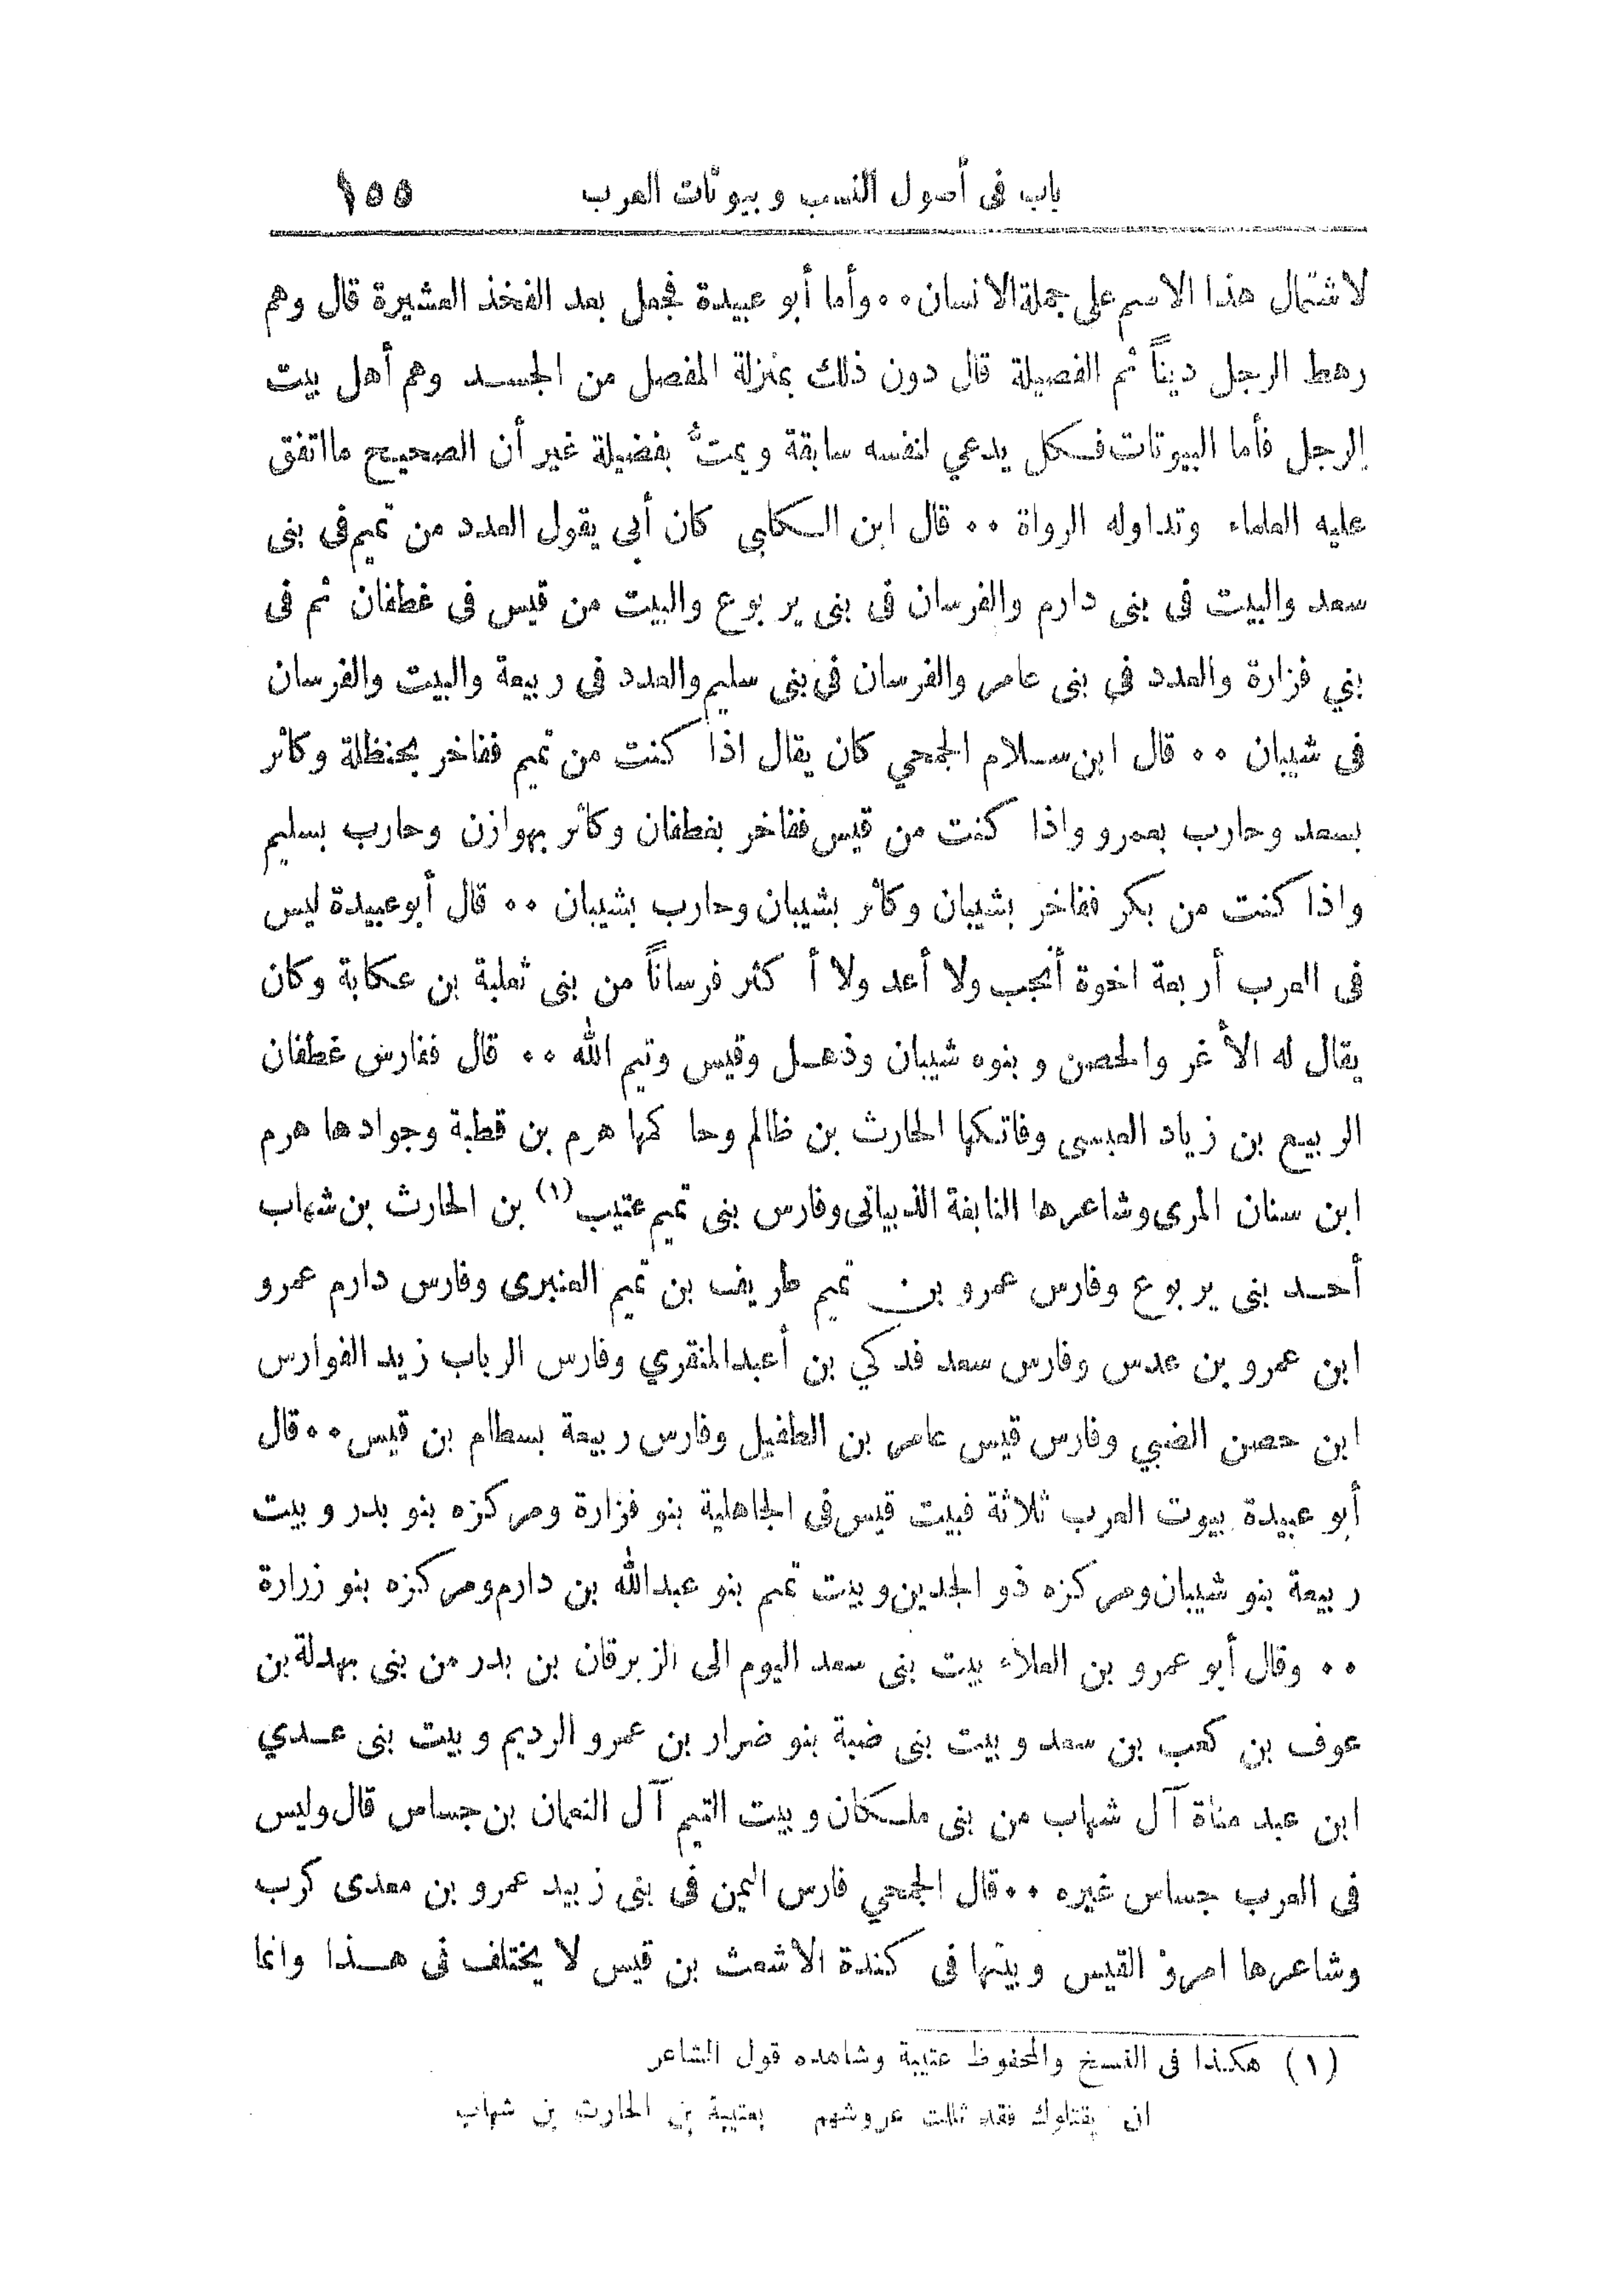 باب فى أصول النسب وبيوتات العرب ١٥٥
لاشتمال هذا الاسم على جملة الانسان ٠٠ وأما أبو عبيدة فجعل بعد الفخذ العشيرة قال وهم
رهط الرجل ديناً ثم الفصيلة قال دون ذلك بمنزلة المفصل من الجسد وهم أهل بيت
الرجل فأما البيوتات فكل يدعي لنفسه سابقة ويمتُّ بفضيلة غير أن الصحيح مااتفق
عليه العلماء وتداوله الرواة ٠٠ قال ابن الكلبي كان أبي يقول العدد من تميم فى بنى
سعد والبيت فى بنى دارم والفرسان فى بنى يربوع والبيت من قيس فى غطفان ثم فى
بني فزارة والعدد في بنى عامر والفرسان فى بنى سليم والعدد فى ربيعة والبيت والفرسان
فى شيبان ٠٠ قال ابن سلام الجمحي كان يقال اذا كنت من تميم ففاخر بحنظلة وكاثر
بسعد وحارب بعمرو واذا كنت من قيس ففاخر بغطفان وكاثر بهوازن وحارب بسليم
واذا كنت من بكر ففاخر بشيبان وكاثر بشيبان وحارب بشيبان ٠٠ قال أبوعبيدة ليس
فى العرب أربعة اخوة أنجب ولا أعد ولا أكثر فرساناً من بنى ثعلبة بن عكابة وكان
يقال له الأغر والحصن وبنوه شيبان وذهل وقيس وتيم الله ٠٠ قال ففارس غطفان
الربيع بن زياد العبسى وفاتكها الحارث بن ظالم وحاكمها هرم بن قطبة وجوادها هرم
ابن سنان المرى وشاعرها النابغة الذبيانى وفارس بنى تميم عتيب (١) بن الحارث بن شهاب
أحد بنى يربوع وفارس عمرو بن تميم طريف بن تميم العنبرى وفارس دارم عمرو
ابن عمرو بن عدس وفارس سعد فدكي بن أعبد المنقري وفارس الرباب زيد الفوارس
ابن حصن الضبي وفارس قيس عامر بن الطفيل وفارس ربيعة بسطام بن قيس ٠٠ قال
أبو عبيدة بيوت العرب ثلاثة فبيت قيس فى الجاهلية بنو فزارة ومركزه بنو بدر وبيت
ربيعة بنو شيبان ومركزه ذو الجدين وبيت تميم بنو عبدالله بن دارم ومركزه بنو زرارة
٠٠ وقال أبو عمرو بن العلاء بيت بنى سعد اليوم الى الزبرقان بن بدر من بنى بهدلة بن
عوف بن كعب بن سعد وبيت بنى ضبة بنو ضرار بن عمرو الرديم وبيت بنى عدي
ابن عبد مناة آل شهاب من بنى ملكان وبيت التيم آل النعمان بن جساس قال وليس
فى العرب جساس غيره ٠٠ قال الجمحي فارس اليمن فى بنى زبيد عمرو بن معدى كرب
وشاعرها امرؤ القيس وبيتها فى كندة الاشعث بن قيس لا يختلف فى هذا وانما
(١) هكذا فى النسخ والمحفوظ عتيبة وشاهده قول الشاعر
ان يقتلوك فقد ثللت عروشهم بعتيبة بن الحارث بن شهاب